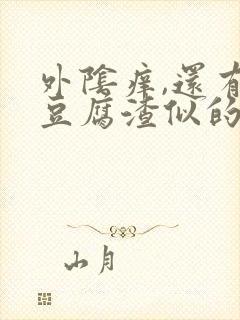 外陰痒,還有
豆腐渣似的
山月